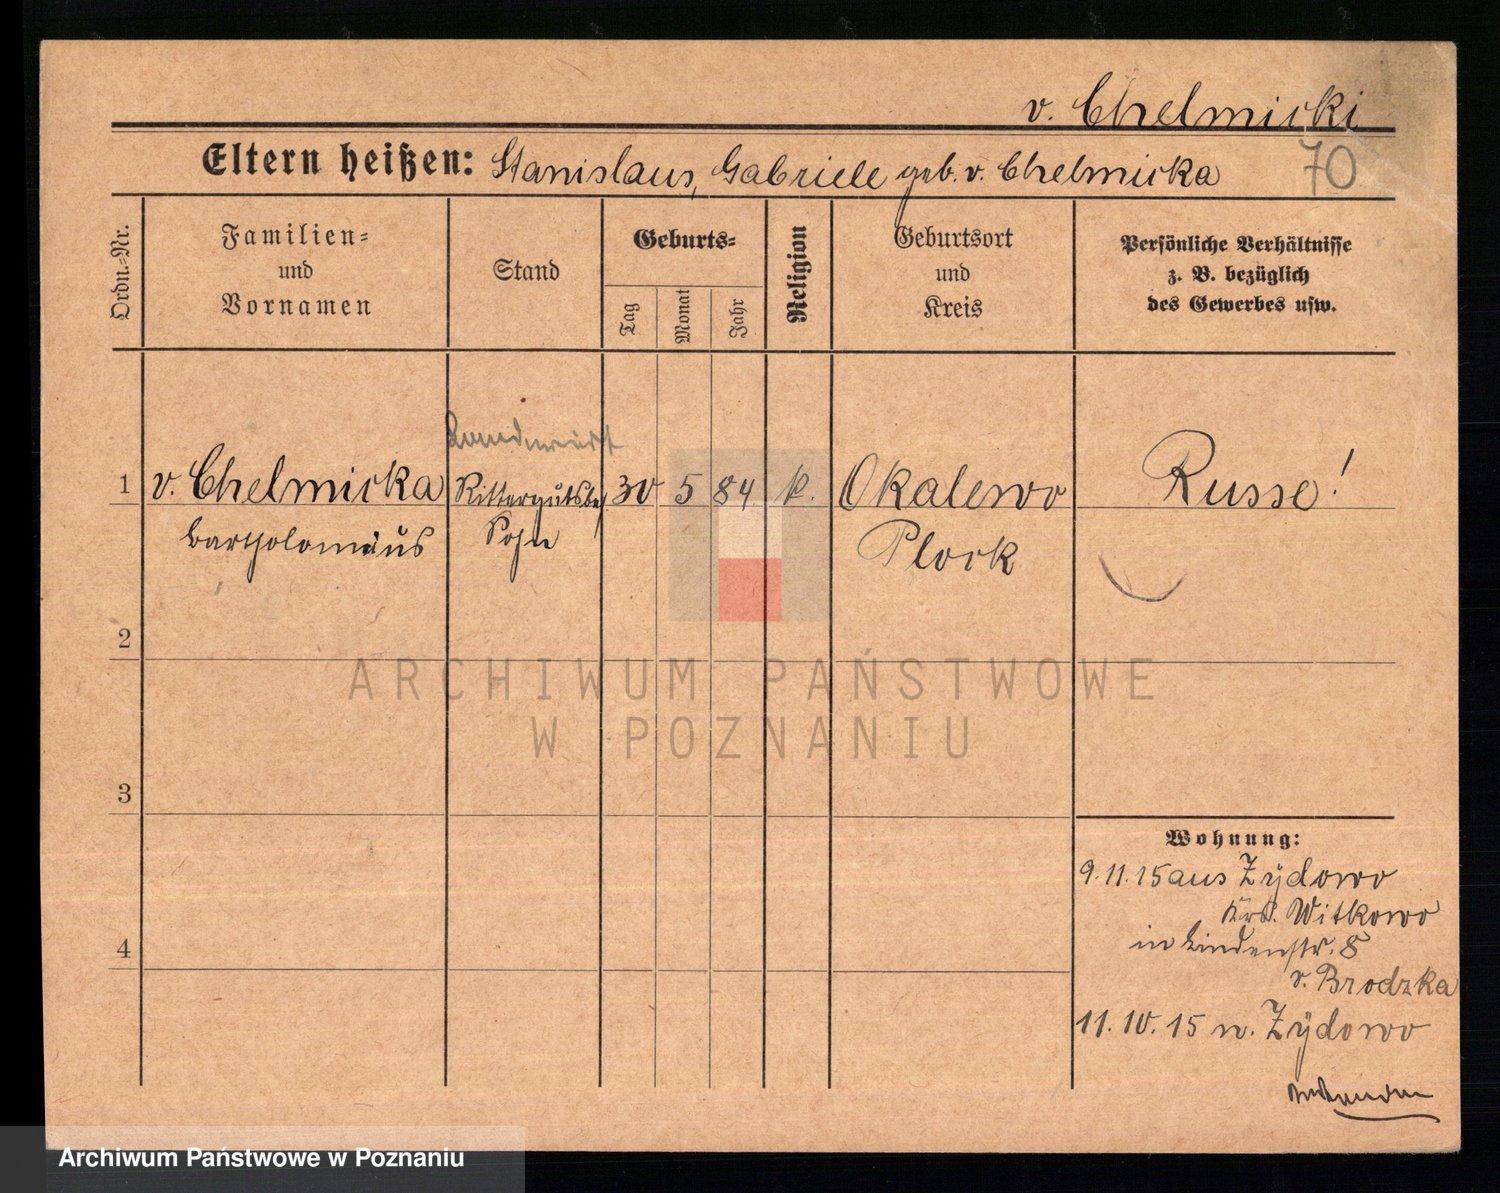 v. Chelmicki
Eltern heißen: Stanislaus, Gabriele geb. v. Chelmicka
70
Ordn.-Nr.
Familien-
und
Vornamen
Stand
Geburts-
Tag
Monat
Jahr
Religion
Geburtsort
und
Kreis
Persönliche Verhältnisse
z. B. bezüglich
des Gewerbes usw.
Landwirt
1 v. Chelmicka Rittergutsbes 30 5 84 k. Okalewo Russe!
Bartholomäus Sohn Plock
2
3
4
Wohnung:
9.11.15 aus Zydowo
Krs. Witkowo
in Lindenstr. 8
v. Brodzka
11.10.15 n. Zÿdowo
ARCHIWUM PAŃSTWOWE
W POZNANIU
Archiwum Państwowe w Poznaniu